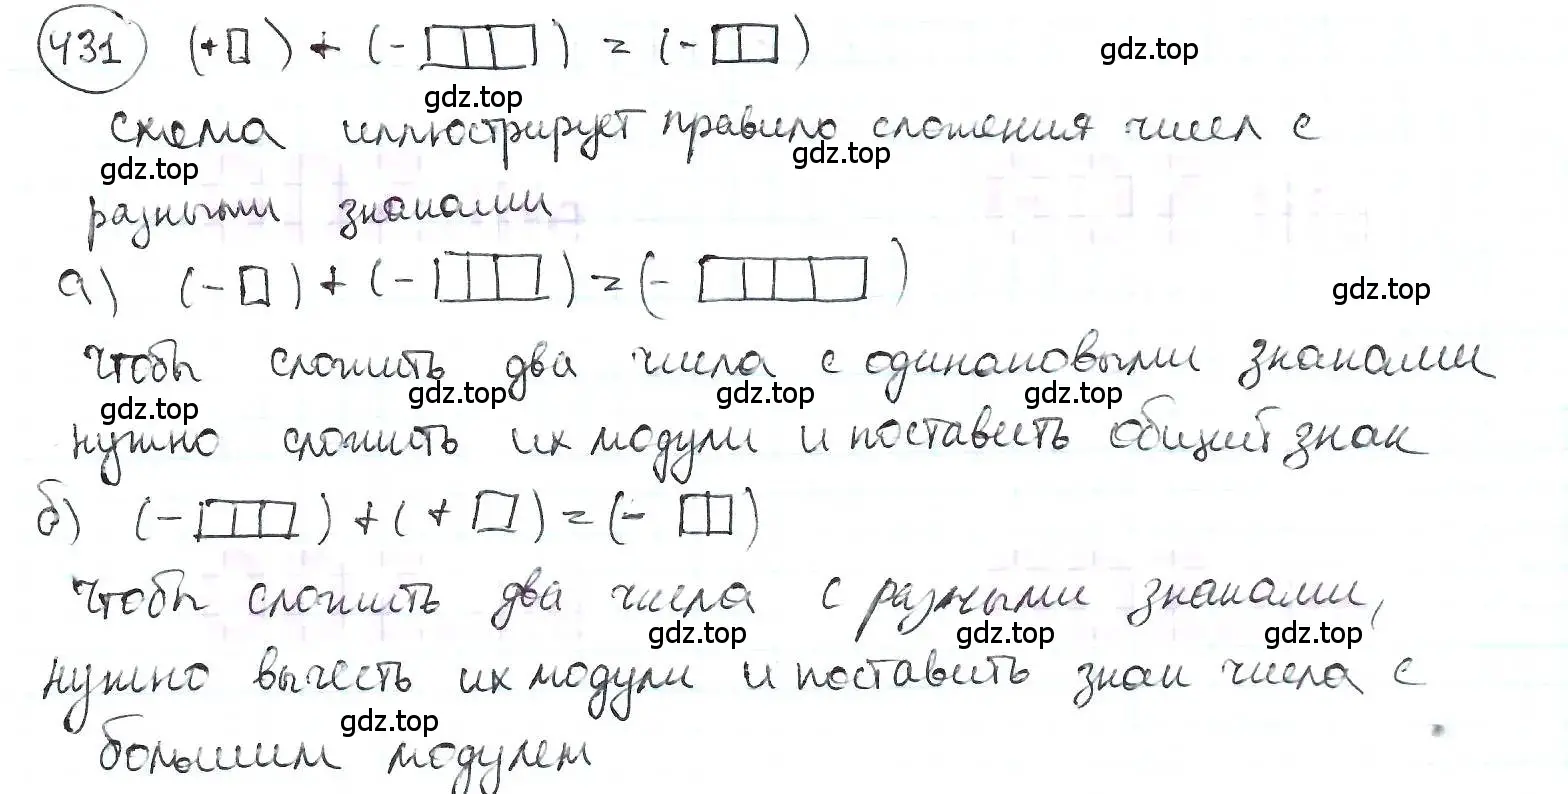 431 (+□) + (-□□□) = (-□□) gdz.top
gdz.top
схема иллюстрирует правило сложения чисел с
gdz.top gdz.top
разными знаками
а) (-□) + (-□□□) = (-□□□□) gdz.top
чтобы сложить два числа с одинаковыми знаками
gdz.top gdz.top gdz.top gdz.top
нужно сложить их модули и поставить общий знак
б) (-□□□) + (+□) = (-□□)
чтобы сложить два числа с разными знаками,
gdz.top gdz.top gdz.top
нужно вычесть их модули и поставить знак числа с
gdz.top
большим модулем